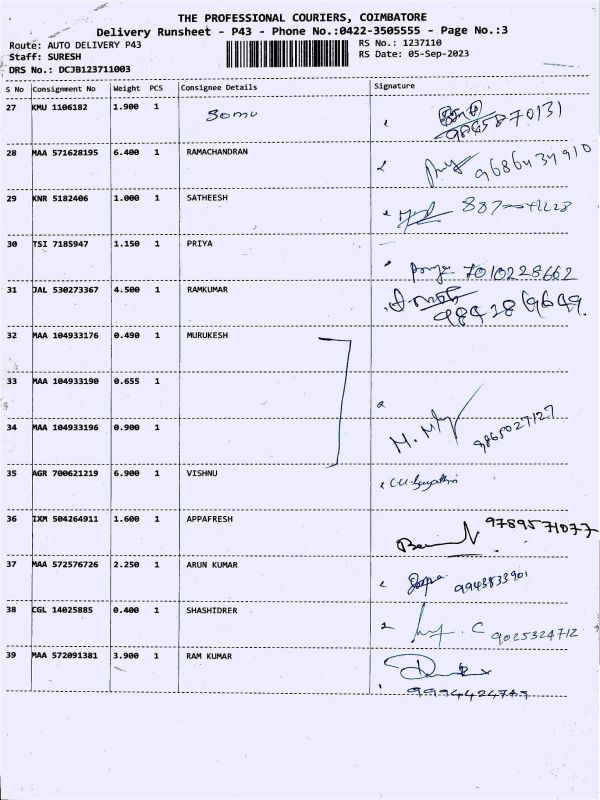 THE PROFESSIONAL COURIERS, COIMBATORE
Delivery Runsheet - P43 - Phone No.:0422-3505555 - Page No.:3
Route: AUTO DELIVERY P43 RS No.: 1237110
Staff: SURESH RS Date: 05-Sep-2023
DRS No.: DCJB123711003
S No Consignment No Weight PCS Consignee Details Signature
27 KMU 1106182 1.900 1 Somu 9845870131
28 MAA 571628195 6.400 1 RAMACHANDRAN 9686434910
29 KNR 5182406 1.000 1 SATHEESH
30 TSI 7185947 1.150 1 PRIYA 7010228662
31 JAL 530273367 4.500 1 RAMKUMAR 9842869649
32 MAA 104933176 0.490 1 MURUKESH
33 MAA 104933190 0.655 1
34 MAA 104933196 0.900 1 9865027127
35 AGR 700621219 6.900 1 VISHNU
36 IXM 504264911 1.600 1 APPAFRESH 9789571077
37 MAA 572576726 2.250 1 ARUN KUMAR 9943833901
38 CGL 14025885 0.400 1 SHASHIDRER 9025324712
39 MAA 572091381 3.900 1 RAM KUMAR 9994424743